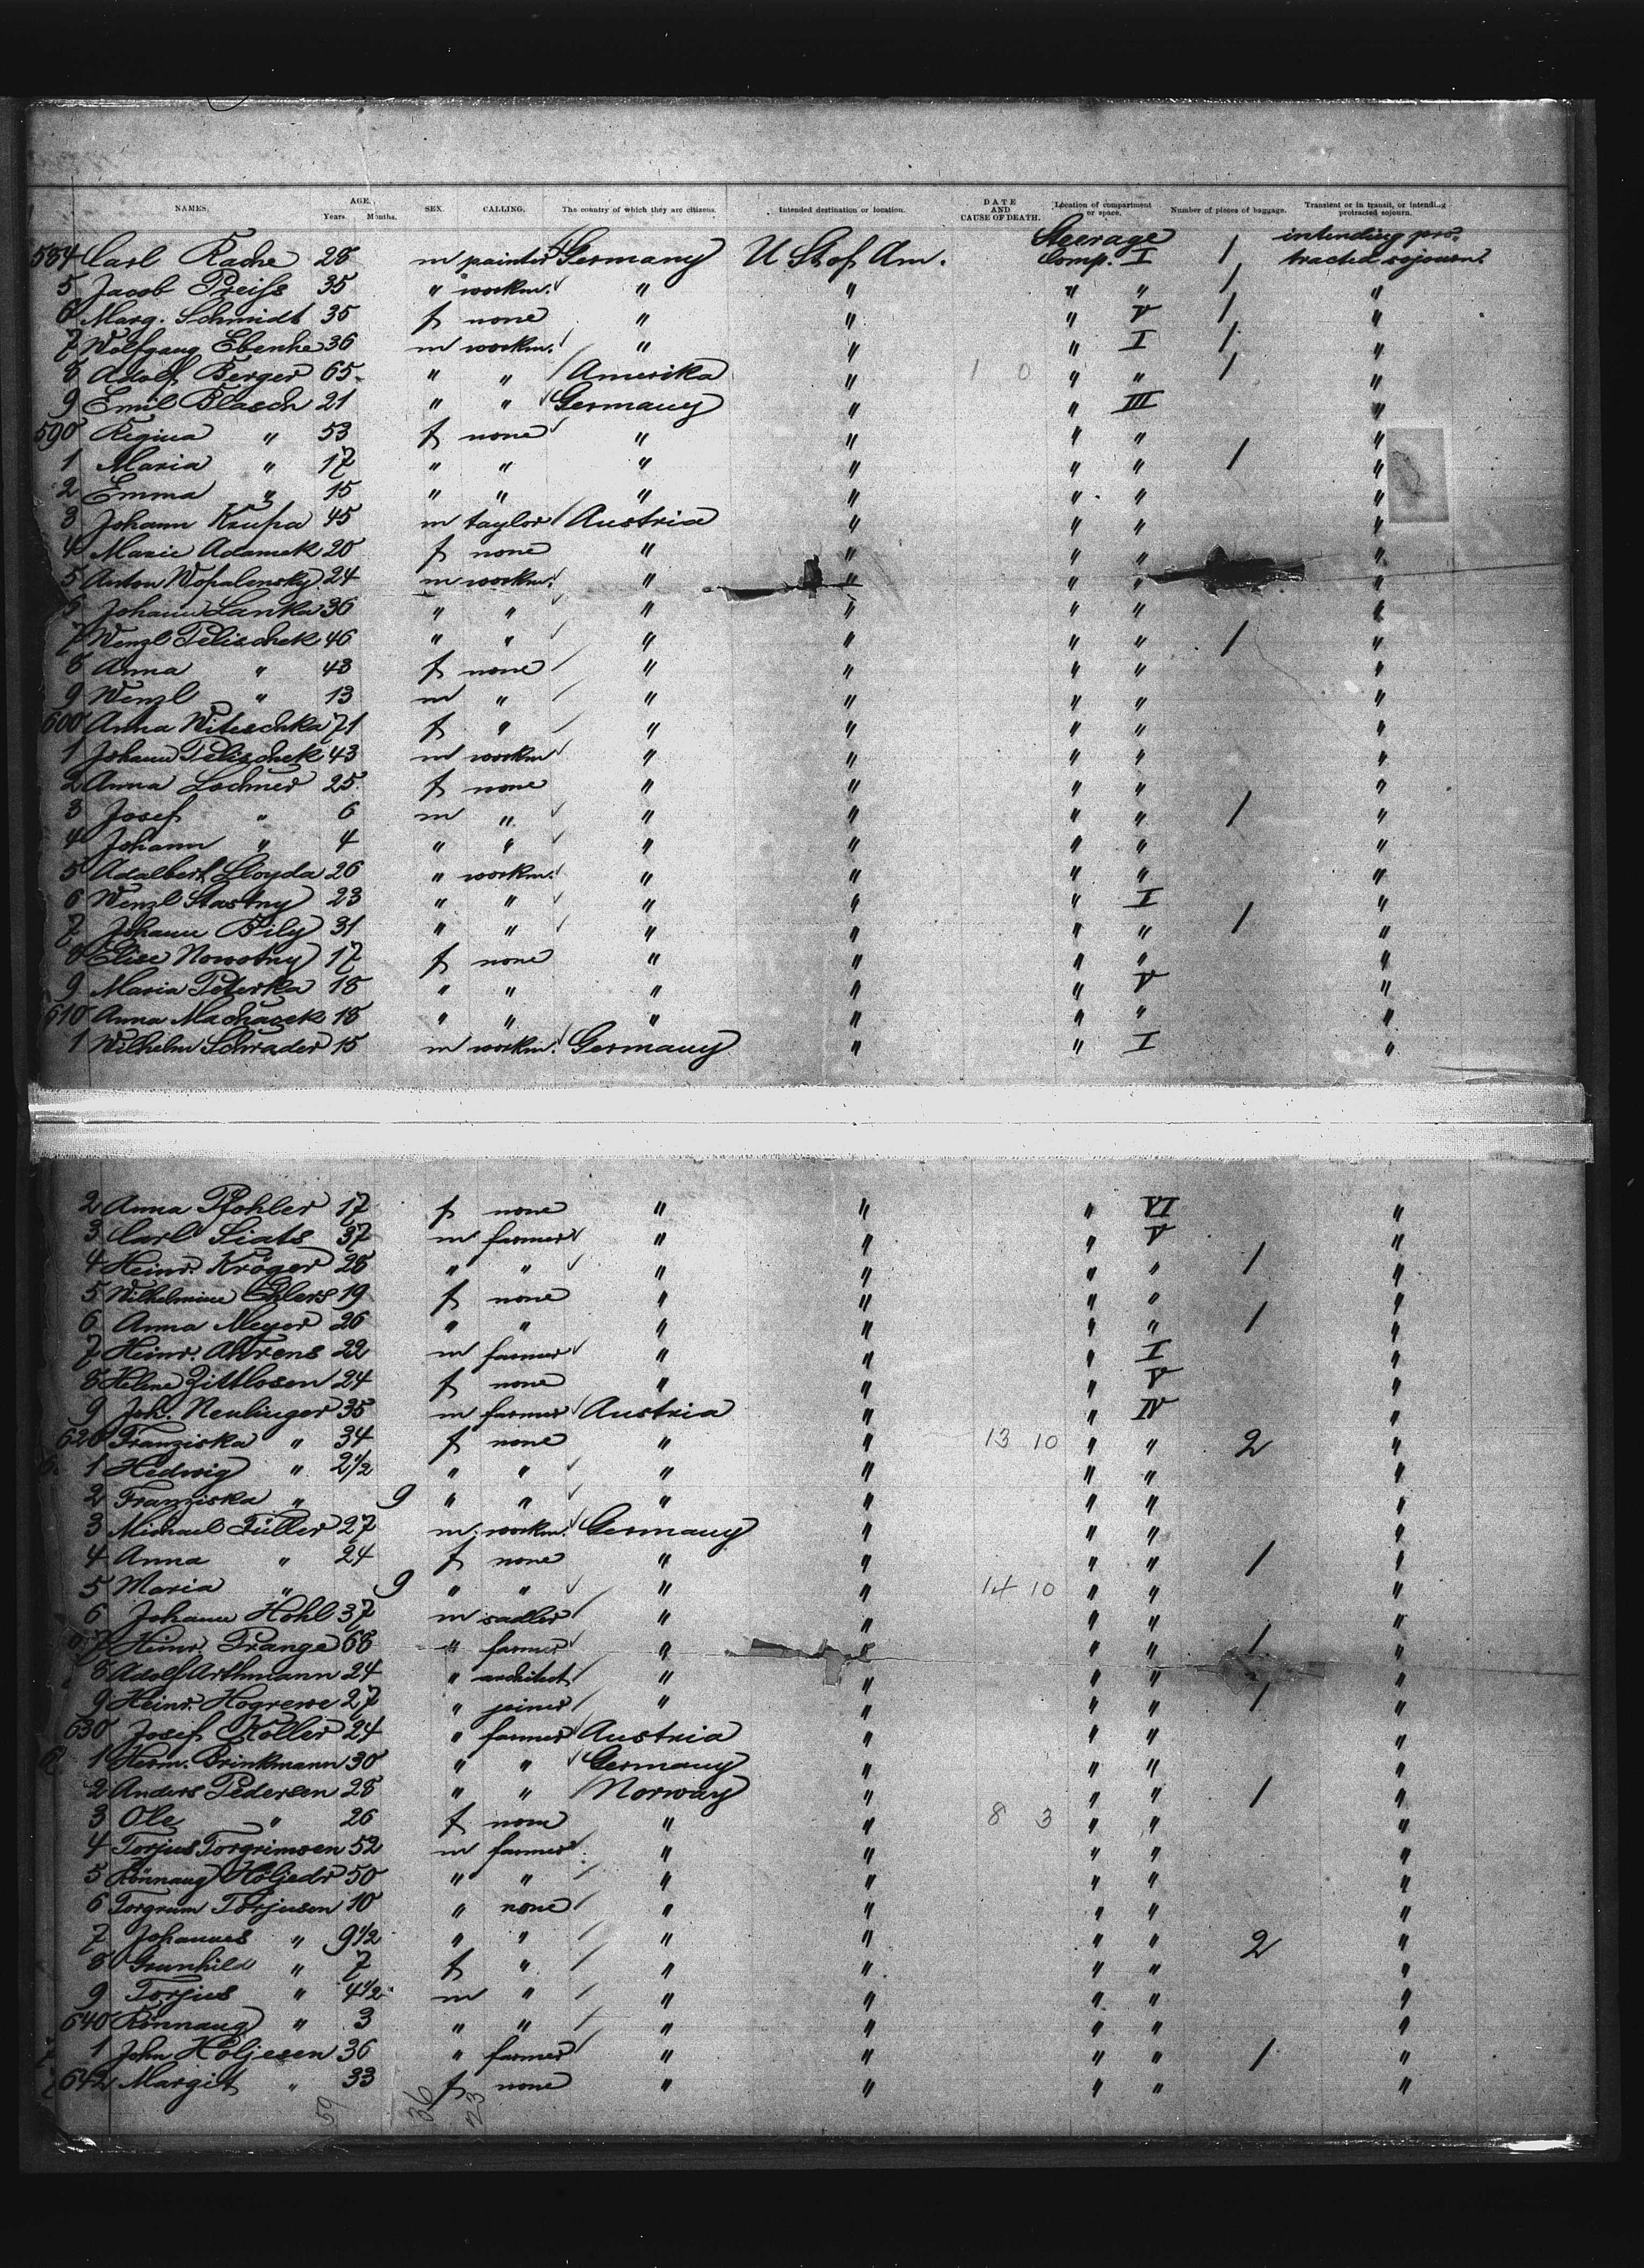 NAMES. AGE. Years. Months. SEX. CALLING. The country of which they are citizens. Intended destination or location. DATE AND CAUSE OF DEATH. Location of compartment or space. Number of pieces of baggage. Transient or in transit, or intending protracted sojourn.
584 Carl Rache 28 m painter Germany U St of Am. Steerage Comp. I 1 intending protracted sojourn.
5 Jacob Preiss 35 " workm. " " " " 1 "
6 Marg. Schmidt 35 f none " " " V 1 "
7 Wolfgang Ebenhe 36 m workm. " " " I 1 "
8 Adolf Berger 65 " " Amerika " 1 0 " " 1 "
9 Emil Blasch 21 " " Germany " " III "
590 Regina " 53 f none " " " " "
1 Maria " 17 " " " " " " 1 "
2 Emma " 15 " " " " " " "
3 Johann Krupa 45 m taylor Austria " " " "
4 Marie Adamek 20 f none " " " " "
5 Anton Wopalensky 24 m workm. " " " " "
6 Johann Lanka 36 " " " " " " "
7 Wenzl Pelischek 46 " " " " " " 1 "
8 Anna " 43 f none " " " " "
9 Wenzl " 13 m " " " " " "
600 Anna Witeschka 71 f " " " " " "
1 Johann Pelischek 43 m workm " " " " "
2 Anna Lochner 25 f none " " " " "
3 Josef " 6 m " " " " " 1 "
4 Johann " 4 " " " " " " "
5 Adalbert Lloyda 26 " workm. " " " " "
6 Wenzl Stastny 23 " " " " " I "
7 Johann Bily 31 " " " " " " 1 "
8 Elise Nowotny 17 f none " " " " "
9 Maria Peterka 18 " " " " " V "
610 Anna Machacek 18 " " " " " " "
1 Wilhelm Schrader 15 m workm. Germany " " I "
2 Anna Pfohler 17 f none " " " VI "
3 Carl Siats 37 m farmer " " " V "
4 Heinr. Kröger 28 " " " " " " 1 "
5 Wilhelmine Ehlers 19 f none " " " " "
6 Anna Meyer 26 " " " " " " 1 "
7 Heinr. Ahrens 22 m farmer " " " I "
8 Helene Zittlosen 24 f none " " " V "
9 Joh. Neulinger 35 m farmer Austria " " IV "
620 Franziska " 34 f none " " 13 10 " " 2 "
1 Hedwig " 2 1/2 " " " " " " "
2 Franziska " 9 " " " " " " "
3 Michael Füller 27 m workm. Germany " " " "
4 Anna " 24 f none " " " " 1 "
5 Maria " 9 " " " " 14 10 " " "
6 Johann Hohl 37 m sadler " " " " "
7 Heinr. Prange 68 " farmer " " " " 1 "
8 Adolf Arthmann 24 " architect " " " " "
9 Heinr. Hogrewe 27 " joiner " " " " 1 "
630 Josef Koller 24 " farmer Austria " " " "
1 Herm. Brinkmann 30 " " Germany " " " "
2 Anders Pedersen 28 " " Norway " " " 1 "
3 Ole " 26 f none " " 8 3 " " "
4 Torjus Torgrimsen 52 m farmer " " " " "
5 Rönnaug Höljedr 50 " " " " " " "
6 Torgrum Torjusen 10 " none " " " " "
7 Johannes " 9 1/2 " " " " " " 2 "
8 Gunhild " 7 f " " " " " "
9 Torjus " 4 1/2 m " " " " " "
640 Rönnaug " 3 " " " " " " "
1 John Höljesen 36 " farmer " " " " 1 "
642 Margit " 33 f none " " " " "
59 36 23